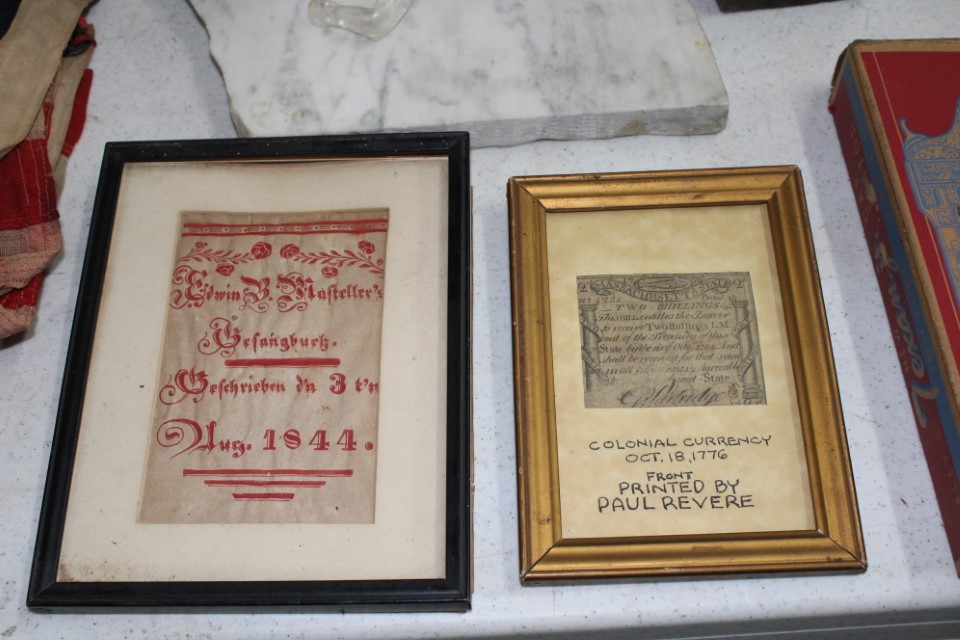 Edwin B. Masteller's
Gesangbuch.
Geschrieben d'n 3 t'n
Aug. 1844.
MASSACHUSETTS STATE
TWO SHILLINGS
This Bill entitles the Bearer
to receive Two shillings L.M.
out of the Treasury of this
State by the
shall be received for that sum
in all Payments Agreeable
State
COLONIAL CURRENCY
OCT. 18, 1776
FRONT
PRINTED BY
PAUL REVERE